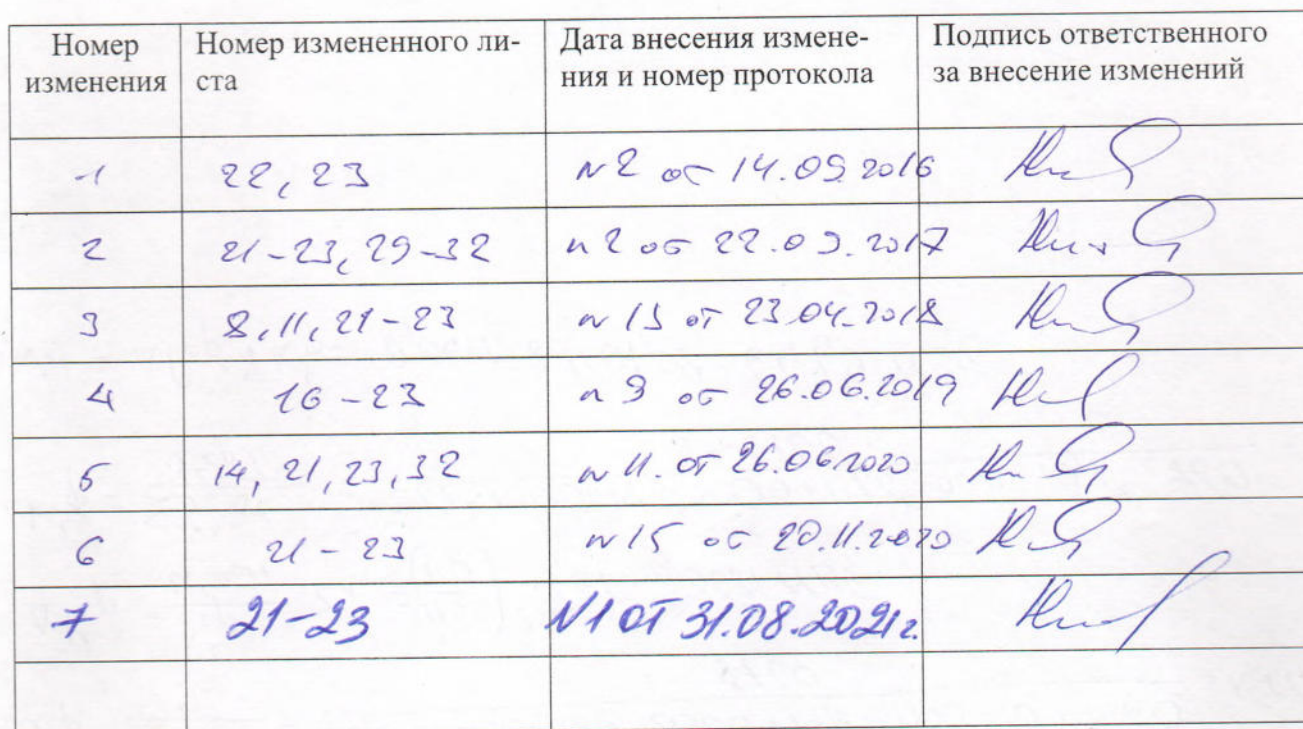 Номер
изменения
Номер измененного ли-
ста
Дата внесения измене-
ния и номер протокола
Подпись ответственного
за внесение изменений
1 22, 23 N 2 от 14.09.2016
2 21-23, 29-32 N 2 от 22.09.2017
3 8, 11, 21-23 N 13 от 23.04.2018
4 16-23 N 9 от 26.06.2019
5 14, 21, 23, 32 N 11. от 26.06.2020
6 21-23 N 15 от 20.11.2020
7 21-23 N1 ОТ 31.08.2021г.